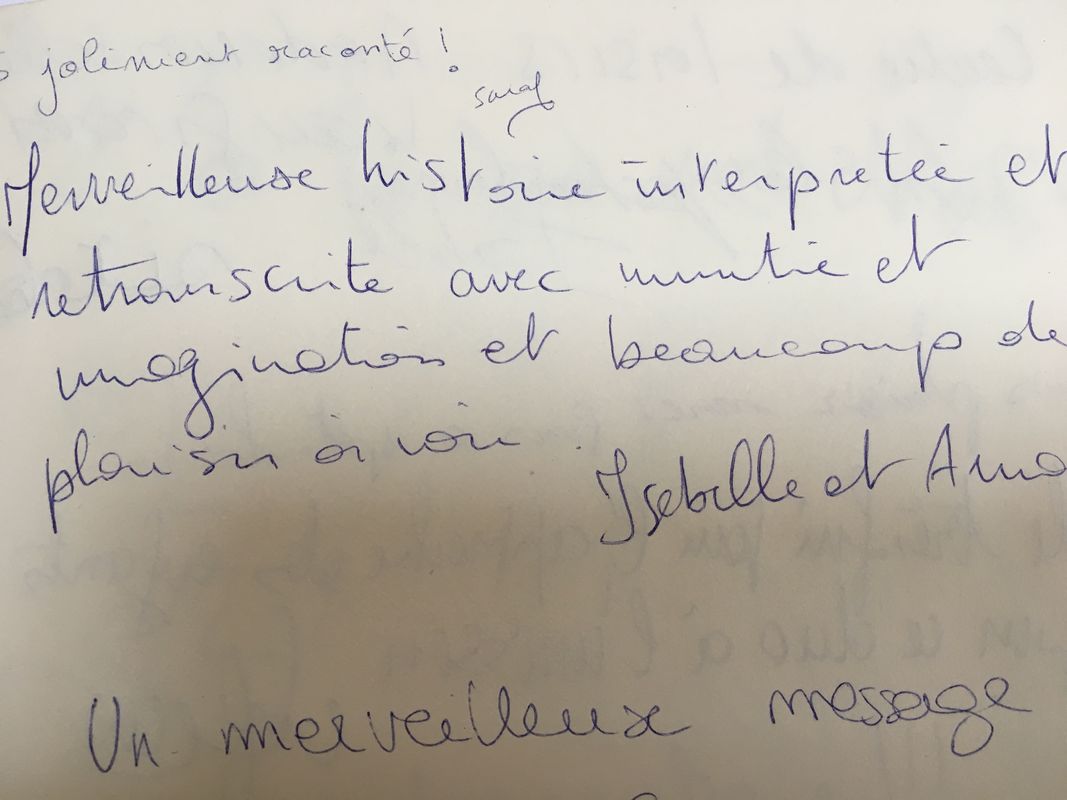 joliment raconté !
Sarah
Merveilleuse histoire interpretée et
retranscrite avec minutie et
imagination et beaucoup de
plaisir à voir.
Isabelle et
Un merveilleux message